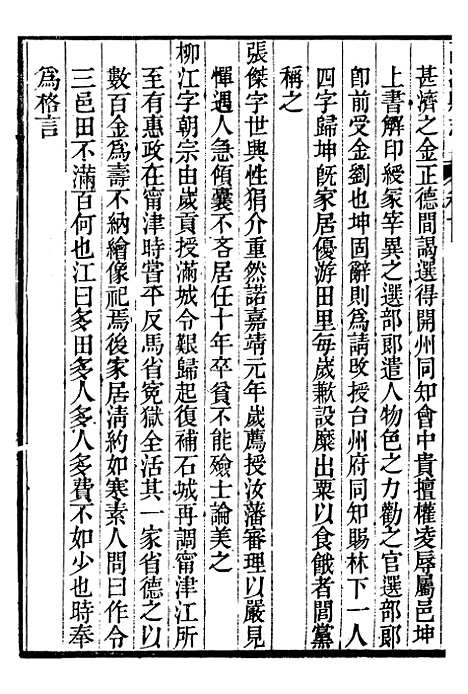 甚濟之金正德間謁選得開州同知會中貴擅權凌辱屬邑坤
上書解印綬冢宰異之選部郞遣人物色之力勸之官選部郞
卽前受金劉也坤固辭則爲請改授台州府同知賜林下一人
四字歸坤旣家居優游田里每歲歉設糜出粟以食餓者閭黨
稱之
張傑字世興性狷介重然諾嘉靖元年歲薦授汝藩審理以嚴見
憚遇人急傾囊不吝居任十年卒貧不能殮士論美之
柳江字朝宗由歲貢授滿城令艱歸起復補石城再調甯津江所
至有惠政在甯津時嘗平反馬省寃獄全活其一家省德之以
數百金爲壽不納繪像祀焉後家居淸約如寒素人問曰作令
三邑田不滿百何也江曰多田多人多人多費不如少也時奉
爲格言